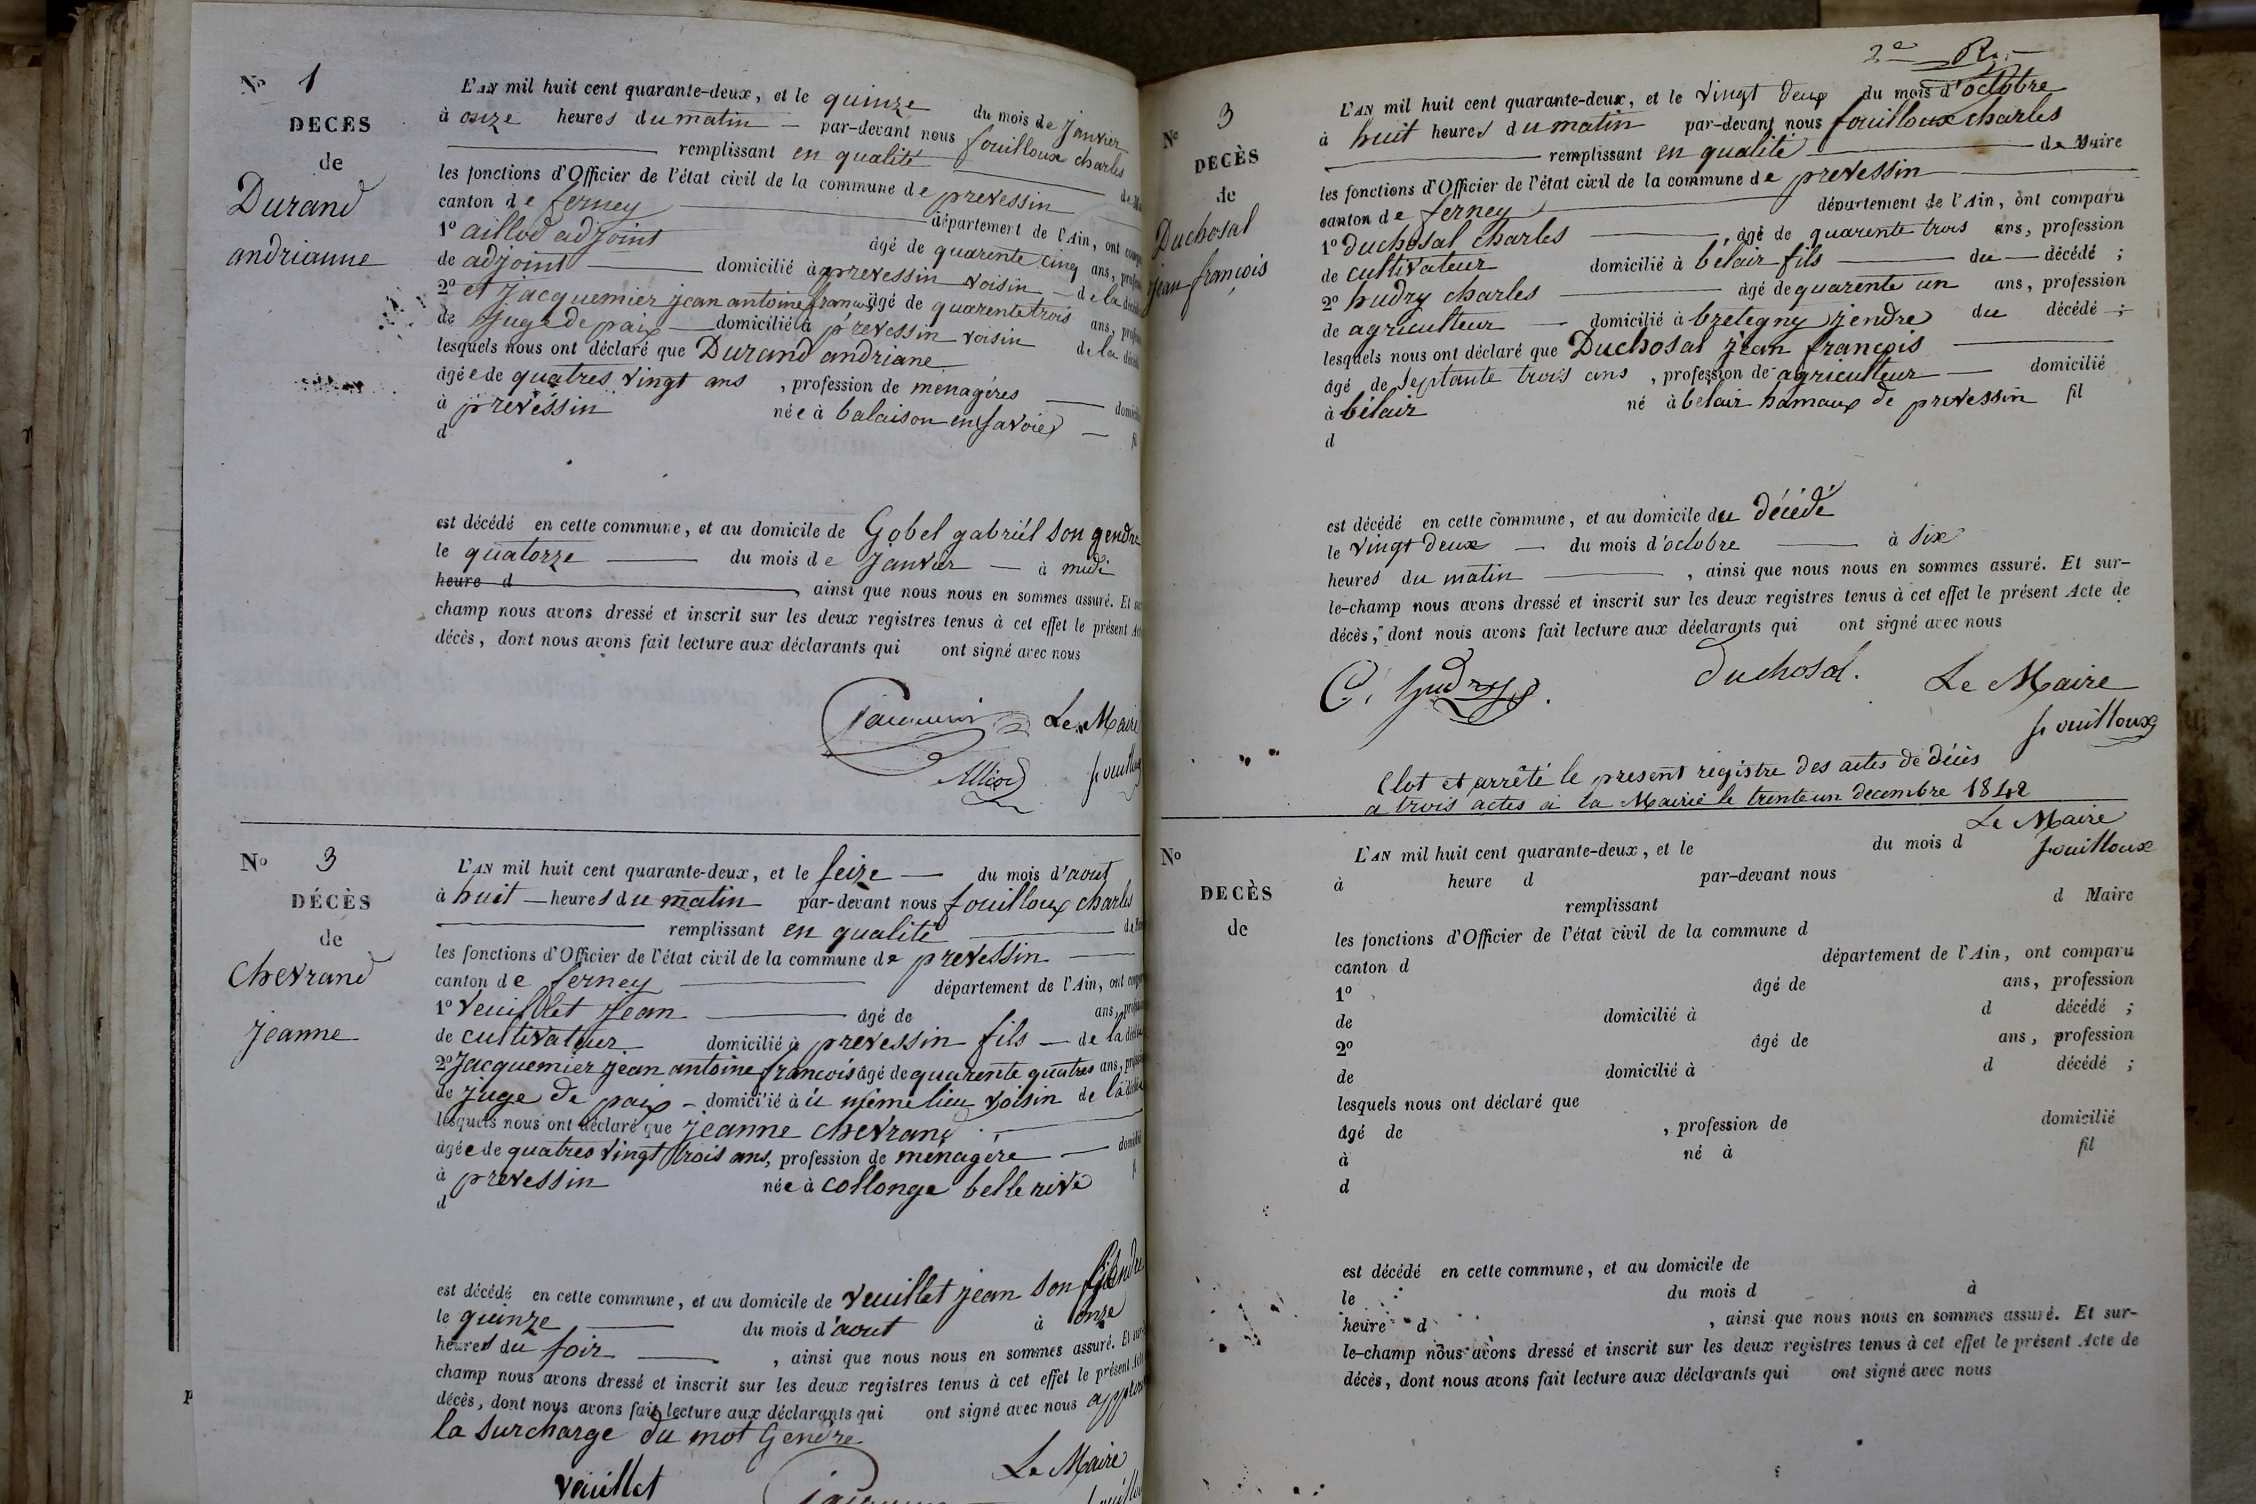 N° 1
DECÈS
de
Durand
andrianne
L'AN mil huit cent quarante-deux, et le quinze du mois de Janvier
à onze heures du matin par-devant nous fouilloux charles
remplissant en qualité de
les fonctions d'Officier de l'état civil de la commune de prevessin
canton de ferney département de l'Ain, ont
1° aillod adjoint âgé de quarente cinq ans,
de adjoint domicilié à prevessin voisin de la
2° et Jacquemier jean antoine françois âgé de quarente trois ans,
de Juge de paix domicilié à prevessin voisin de la
lesquels nous ont déclaré que Durand andriane
âgée de quatres vingt ans, profession de menagéres
à prevéssin née à balaison en Savoie
d
est décédé en cette commune, et au domicile de Gobel gabriél son gendre
le quatorze du mois de Janvier à midi
heure d, ainsi que nous nous en sommes assuré. Et
champ nous avons dressé et inscrit sur les deux registres tenus à cet effet le présent
décès, dont nous avons fait lecture aux déclarants qui ont signé avec nous
Le Maire
N° 3
DÉCÈS
de
Chevrand
Jeanne
L'AN mil huit cent quarante-deux, et le seize du mois d'aout
à huit heures du matin par-devant nous fouilloux charles
remplissant en qualité
les fonctions d'Officier de l'état civil de la commune de prevessin
canton de ferney département de l'Ain, ont
1° Veuillet Jean âgé de ans,
de cultivateur domicilié à prevessin fils de la
2° Jacquemier jean antoine francois âgé de quarente quatres ans,
de Juge de paix domicilié à u même lieu voisin de la
lesquels nous ont déclaré que jeanne chevrand
âgée de quatres vingt trois ans, profession de ménagére
à prevessin née à collonge belle rive
d
est décédé en cette commune, et au domicile de Veuillet jean son
le quinze du mois d'aout à onze
heures du soir, ainsi que nous nous en sommes assuré. Et
champ nous avons dressé et inscrit sur les deux registres tenus à cet effet le présent
décès, dont nous avons fait lecture aux déclarants qui ont signé avec nous
la surcharge du mot Gendre
Le Maire
veuillet
2e
N° 3
DECÈS
de
Duchosal
jean françois
L'AN mil huit cent quarante-deux, et le vingt deux du mois d'octobre
à huit heures du matin par-devant nous fouilloux charles
remplissant en qualité de Maire
les fonctions d'Officier de l'état civil de la commune de prevessin
canton de ferney département de l'Ain, ont comparu
1° duchosal charles, âgé de quarente trois ans, profession
de cultivateur domicilié à bélair fils du décédé ;
2° hudry charles âgé de quarente un ans, profession
de agriculteur domicilié à bretegny jendre du décédé ;
lesquels nous ont déclaré que Duchosal jean françois
âgé de septante trois ans, profession de agriculteur domicilié
à bélair né à belair hamaux de prevessin fil
d
est décédé en cette commune, et au domicile du décédé
le vingt deux du mois d'octobre à six
heures du matin, ainsi que nous nous en sommes assuré. Et sur-
le-champ nous avons dressé et inscrit sur les deux registres tenus à cet effet le présent Acte de
décès, dont nous avons fait lecture aux déclarants qui ont signé avec nous
C. hudry
duchosal.
Le Maire
fouilloux
Clot et arrêté le present régistre des actes de décès
a trois actes à la Mairie le trente un decembre 1842
Le Maire
fouilloux
N°
DECÈS
de
L'AN mil huit cent quarante-deux, et le du mois d
à heure d par-devant nous
remplissant d Maire
les fonctions d'Officier de l'état civil de la commune d
canton d département de l'Ain, ont comparu
1° âgé de ans, profession
de domicilié à d décédé ;
2° âgé de ans, profession
de domicilié à d décédé ;
lesquels nous ont déclaré que
âgé de , profession de domicilié
à né à fil
d
est décédé en cette commune, et au domicile de
le du mois d à
heure d , ainsi que nous nous en sommes assuré. Et sur-
le-champ nous avons dressé et inscrit sur les deux registres tenus à cet effet le présent Acte de
décès, dont nous avons fait lecture aux déclarants qui ont signé avec nous